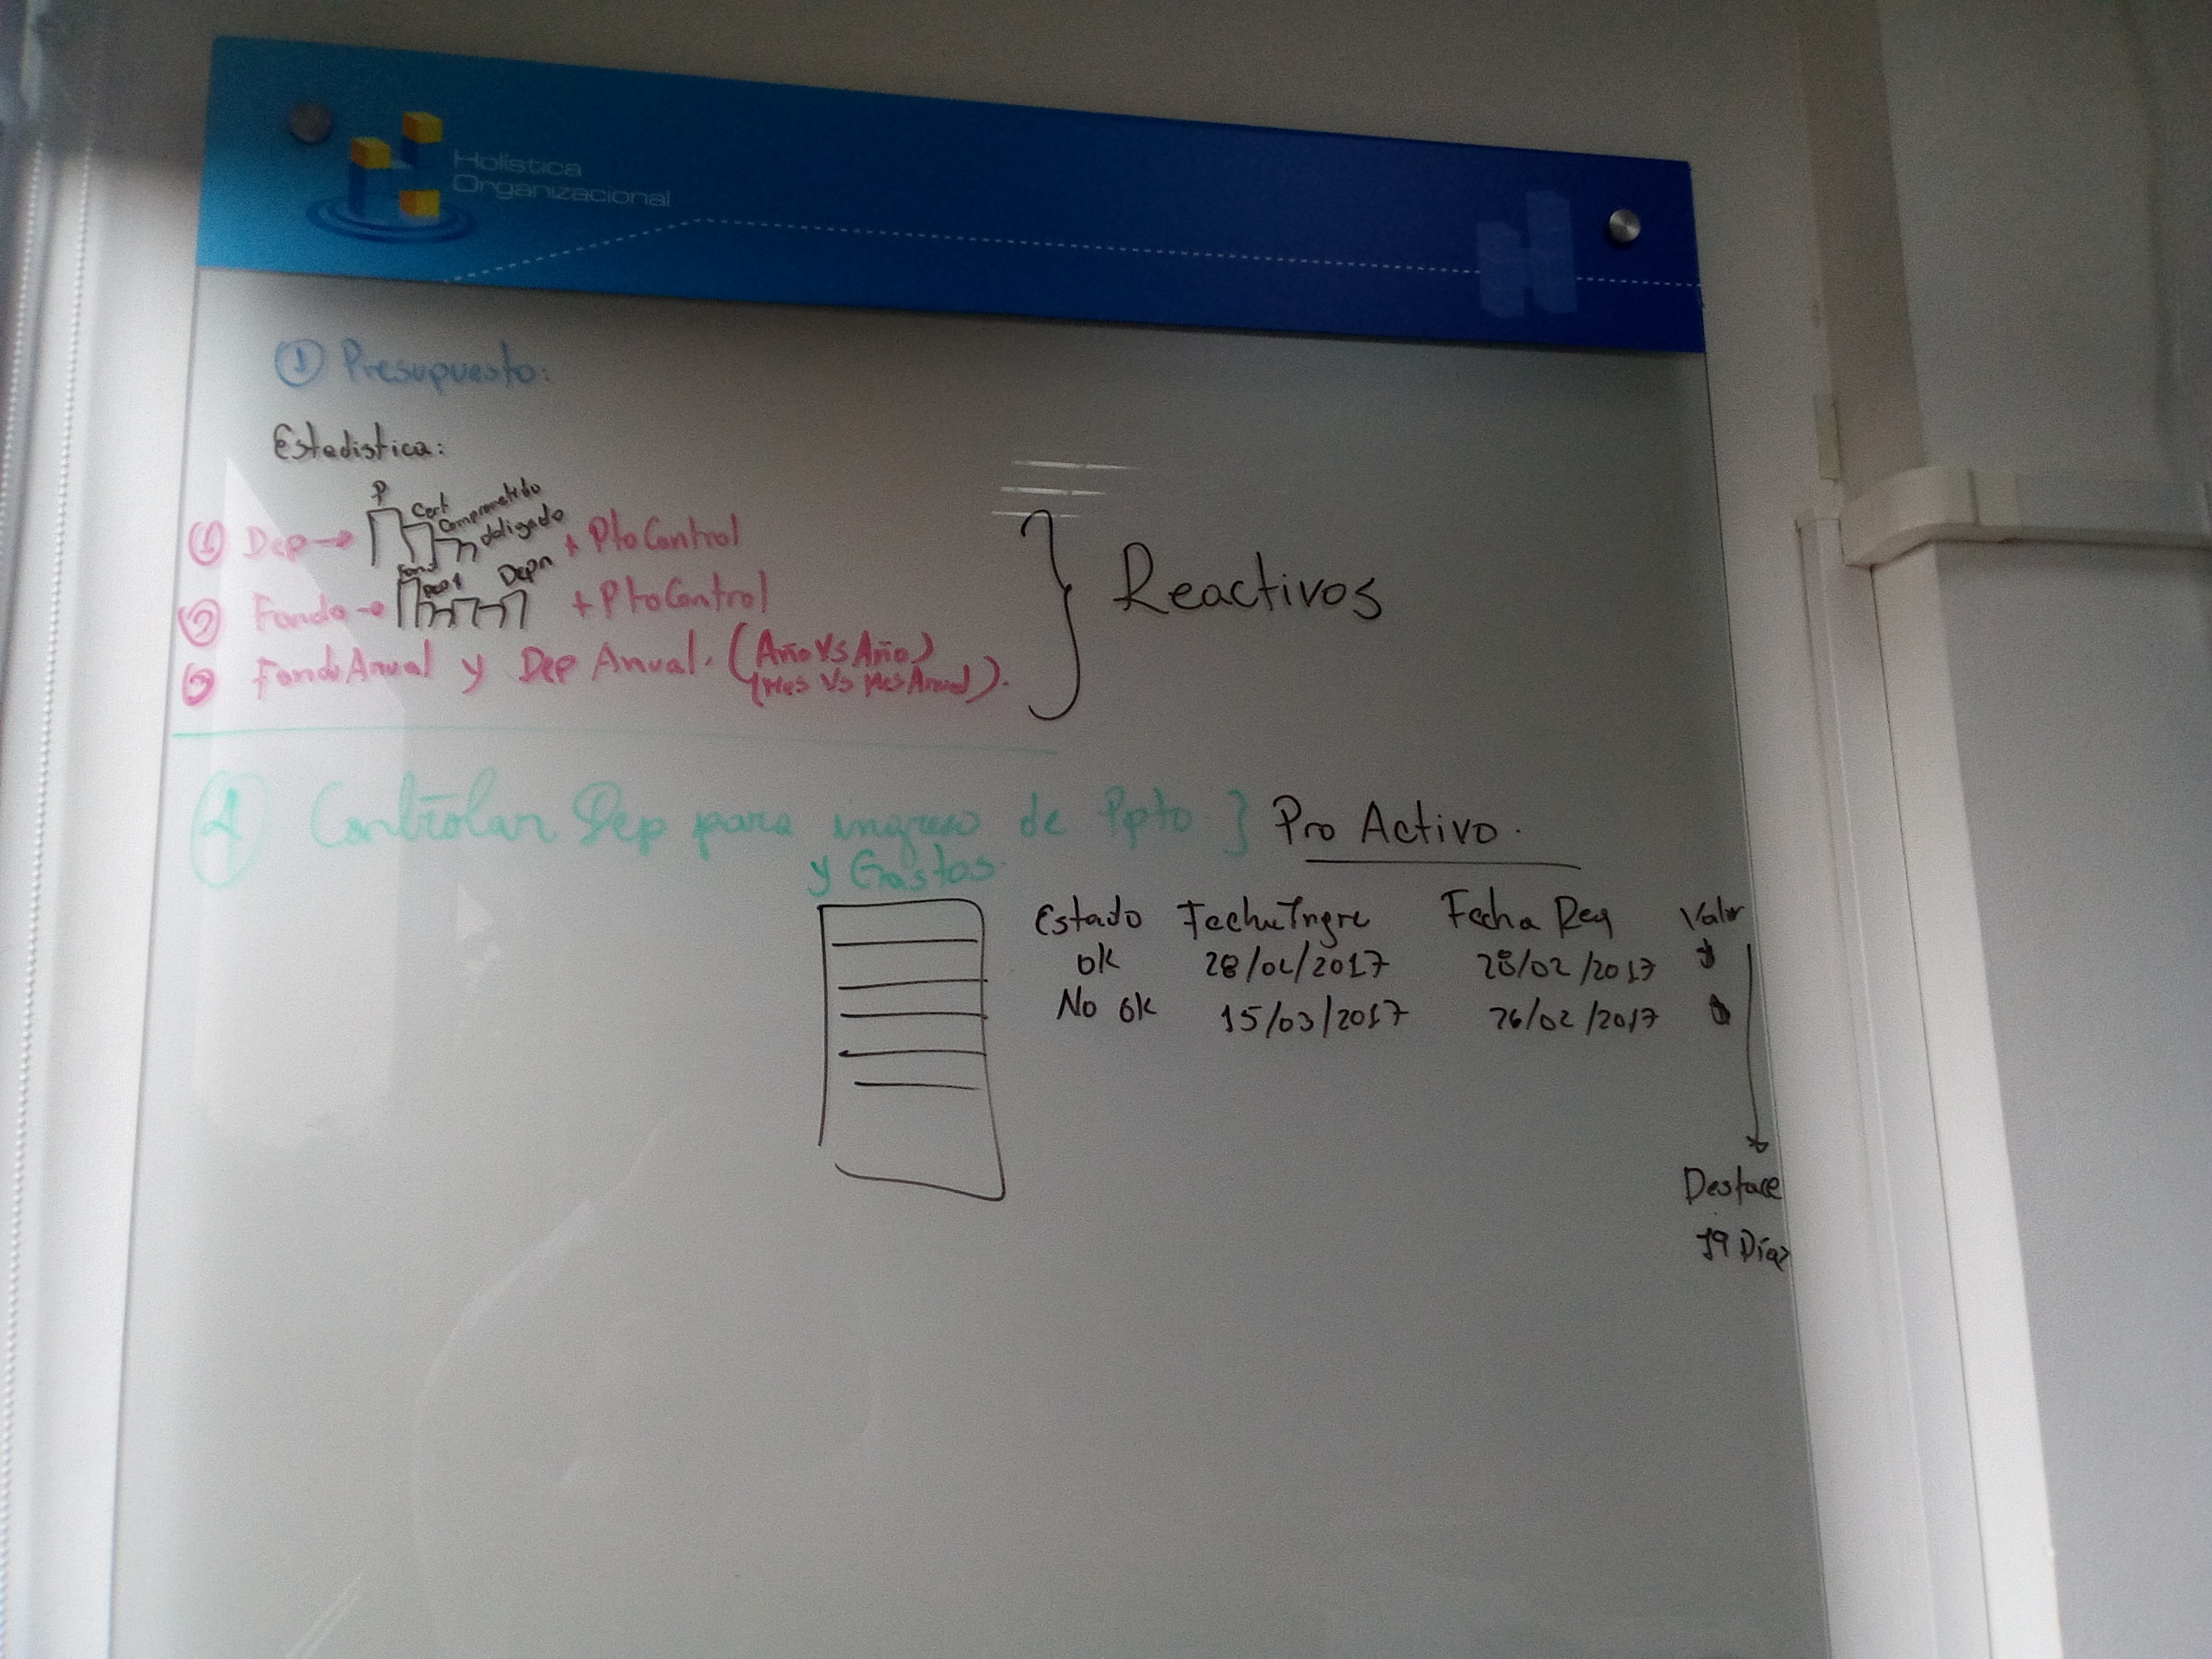 Holística
Organizacional
① Presupuesto:
Estadistica:
P
Cert
Comprometido
obligado
① Dep → + Pto Control
Fond
Dep1
Depn
② Fondo → + Pto Control
③ Fondo Anual y Dep Anual. (Año Vs Año)
(Mes Vs Mes Anual).
} Reactivos
Controlar Dep para ingreso de Ppto. } Pro Activo.
y Gastos.
Estado Fecha Ingre Fecha Req Valor
ok 28/02/2017 28/02/2017 $
No ok 15/03/2017 26/02/2017
Desface
19 Días